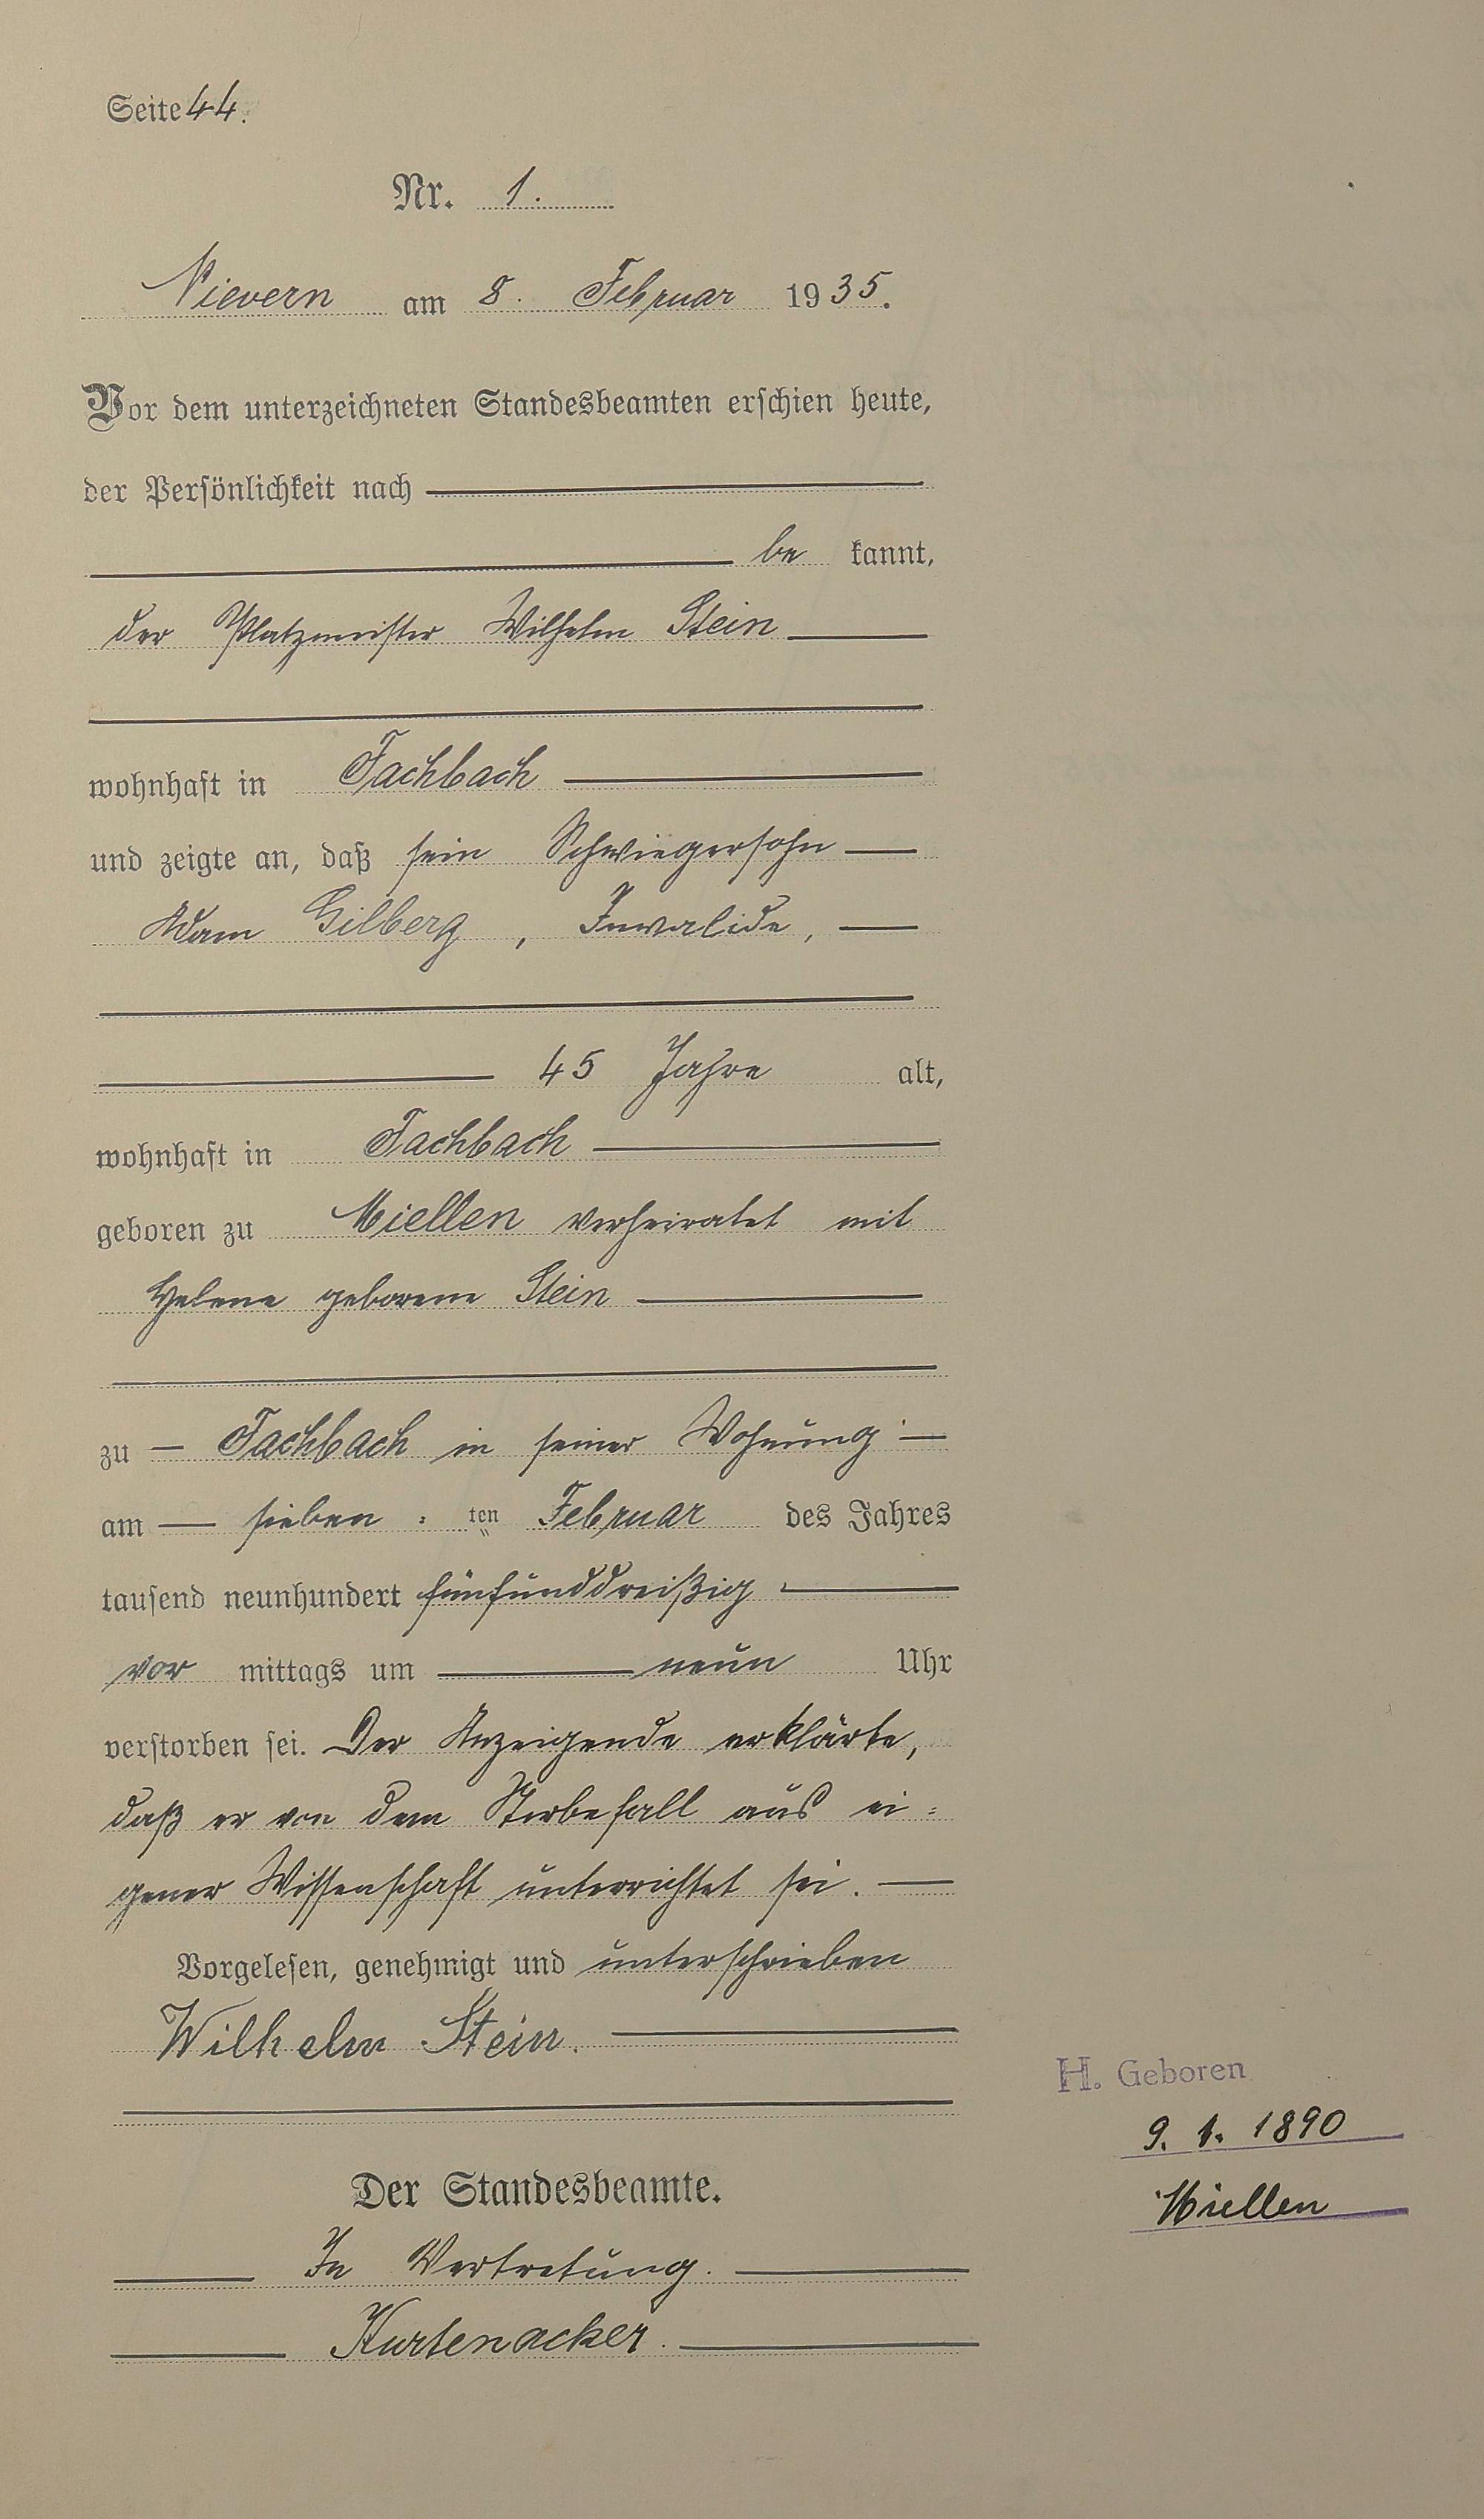 Seite 44.
Nr. 1.
Nievern am 8. Februar 1935.
Vor dem unterzeichneten Standesbeamten erschien heute,
der Persönlichkeit nach
be kannt,
der Platzmeister Wilhelm Stein
wohnhaft in Fachbach
und zeigte an, daß sein Schwiegersohn
Adam Gilberg, Invalide,
45 Jahre alt,
wohnhaft in Fachbach
geboren zu Miellen verheiratet mit
Helene geborene Stein
zu Fachbach in seiner Wohnung
am sieben = ten Februar des Jahres
tausend neunhundert fünfunddreißig
vor mittags um neun Uhr
verstorben sei. Der Anzeigende erklärte,
daß er von dem Sterbefall aus ei=
gener Wissenschaft unterrichtet sei.
Vorgelesen, genehmigt und unterschrieben
Wilhelm Stein.
H. Geboren
9. 1. 1890
Miellen
Der Standesbeamte.
In Vertretung.
Kurtenacker.